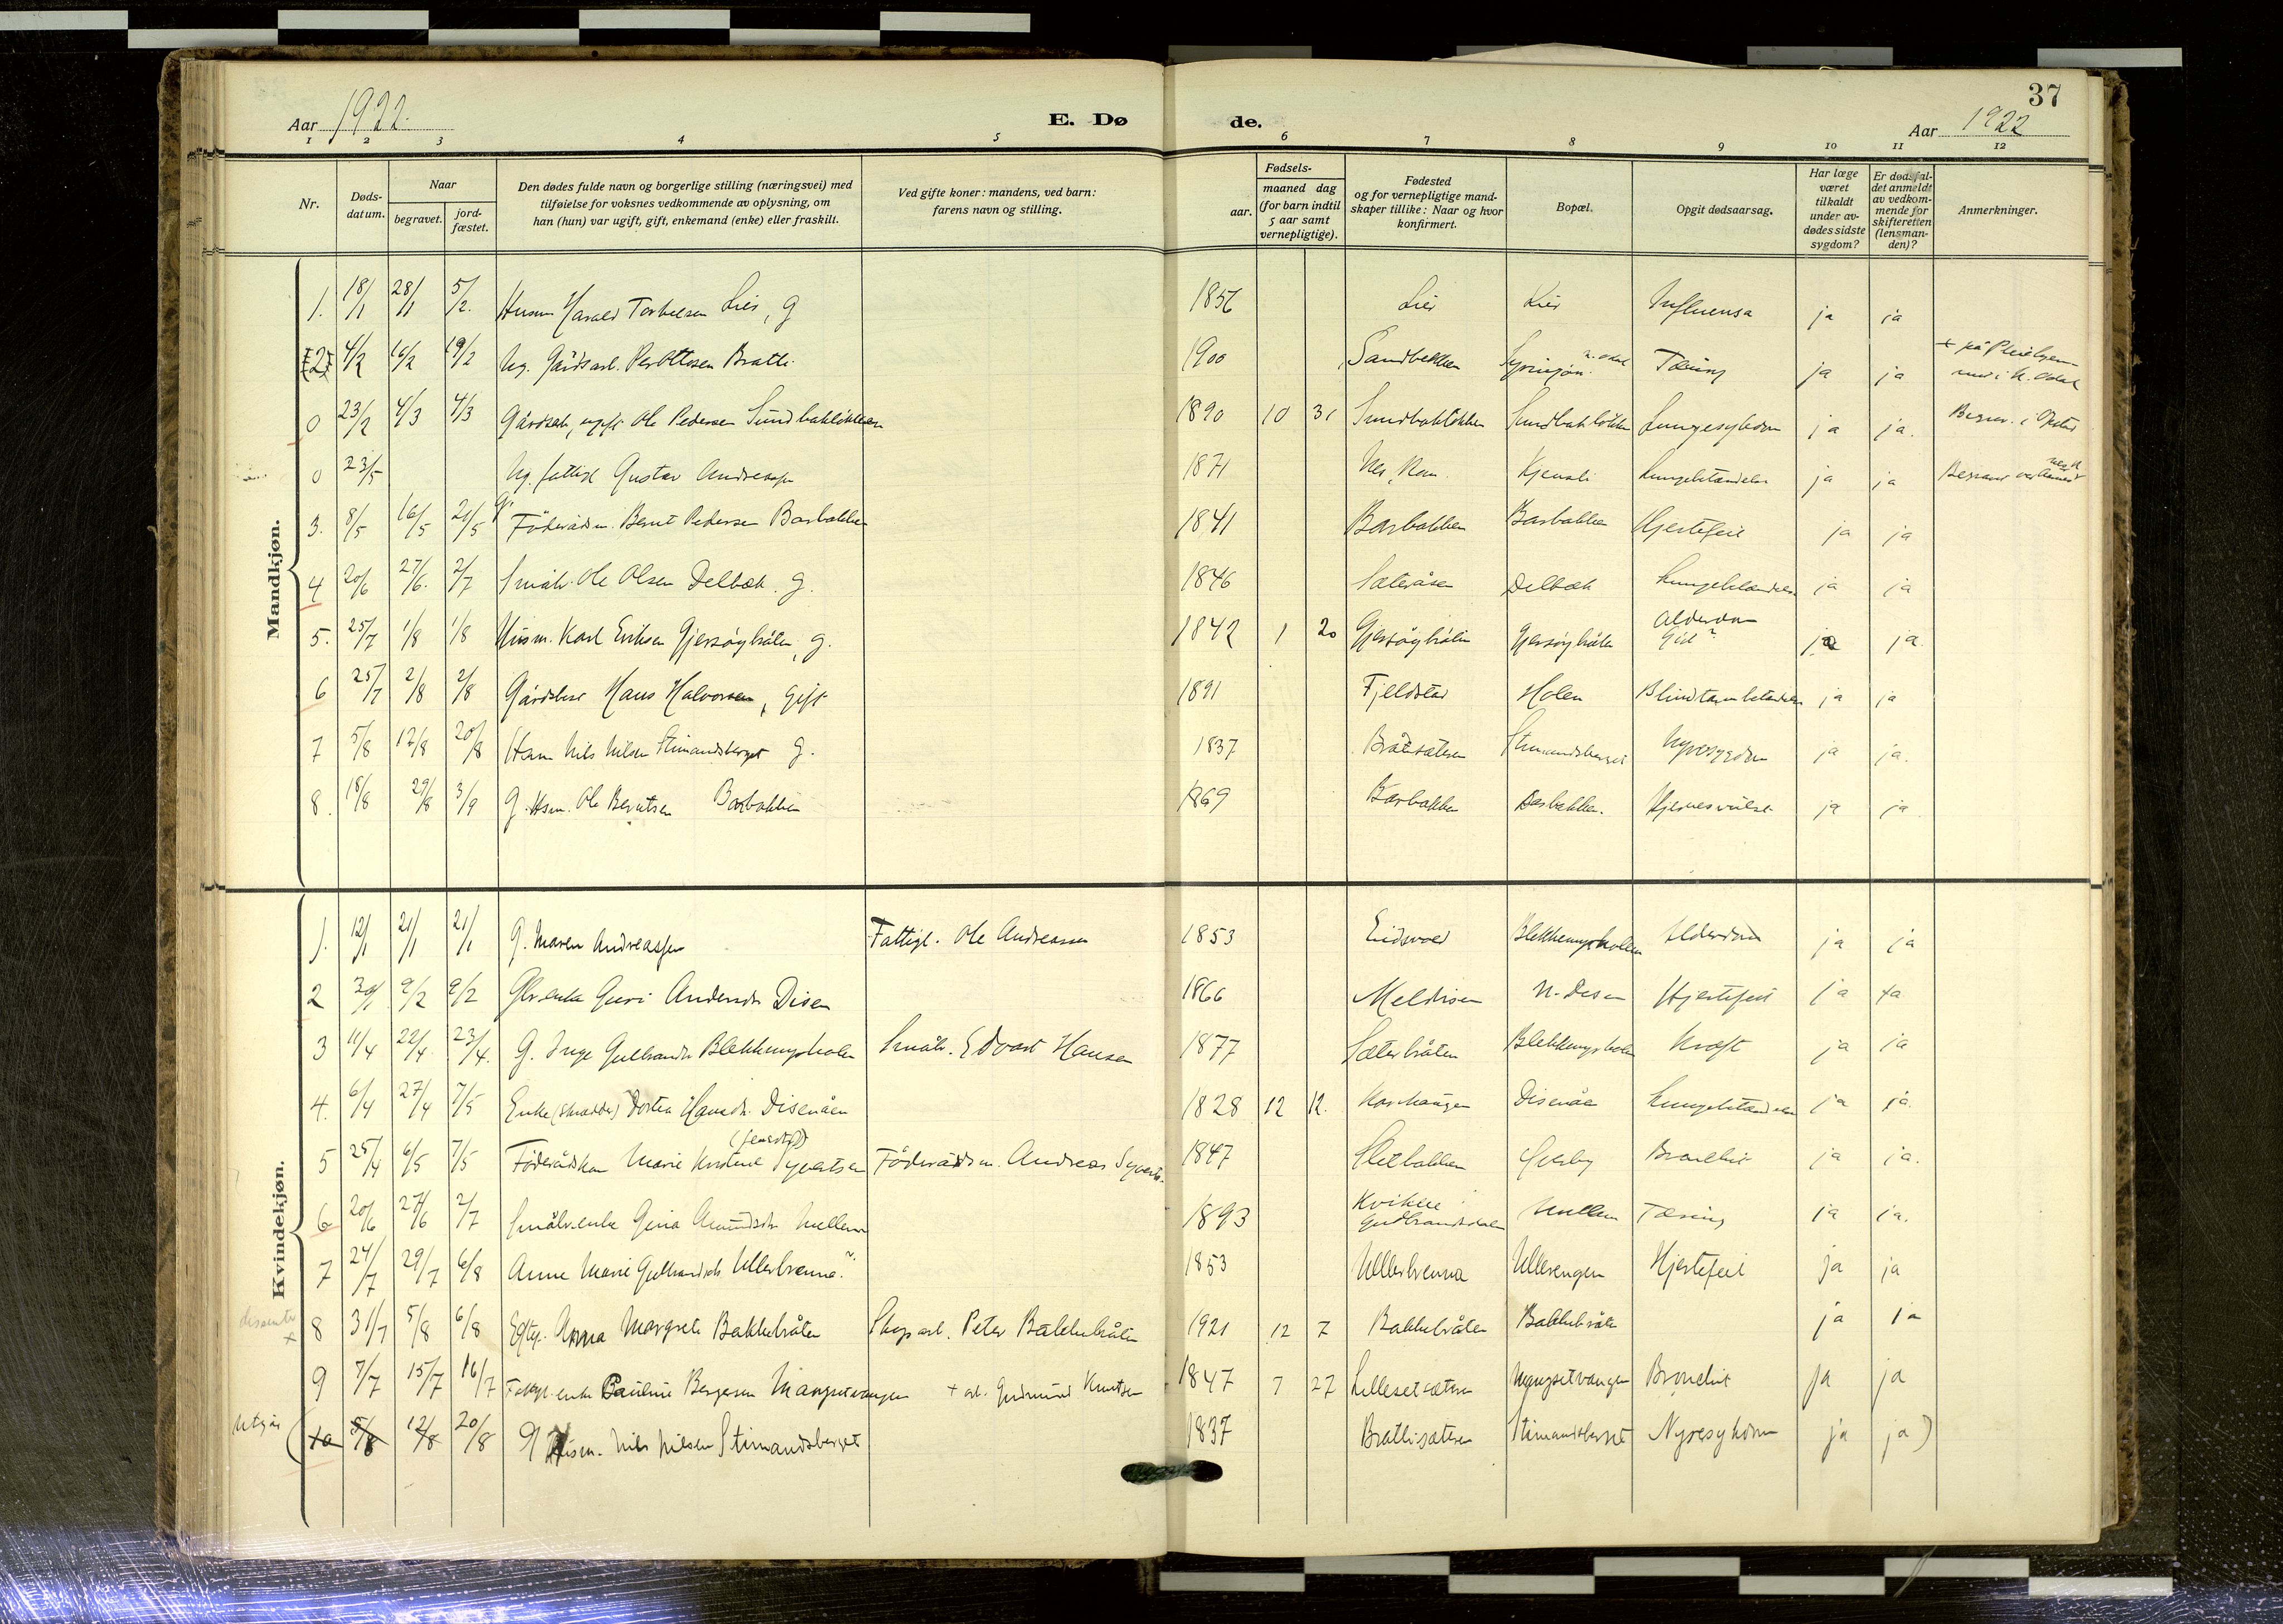 37
Aar 1922. E. Dø de. Aar 1922
1 2 3 4 5 6 7 8 9 10 11 12
Nr. Døds-datum. Naar begravet. jord-fæstet. Den dødes fulde navn og borgerlige stilling (næringsvei) med tilføielse for voksnes vedkommende av oplysning, om han (hun) var ugift, gift, enkemand (enke) eller fraskilt. Ved gifte koner: mandens, ved barn: farens navn og stilling. Fødsels- aar. maaned dag (for barn indtil 5 aar samt vernepligtige). Fødested og for vernepligtige mand-skaper tillike: Naar og hvor konfirmert. Bopæl. Opgit dødsaarsag. Har læge været tilkaldt under av-dødes sidste sygdom? Er dødsfal-det anmeldt av vedkom-mende for skifteretten (lensman-den)? Anmerkninger.
Mandkjøn.
1. 18/1 28/1 5/2. Husm Harald Torkelsen Lier, g 1856 Lier Lier Influensa ja ja
2 4/2 16/2 19/2 Ug. Gårdsarb. Per Ottosen Bratli. 1900 Sandbekken n. odal Tæring ja ja + på i N. Odal
0 23/2 4/3 4/3 Gårdsarb, ugift Ole Pedersen Sundbakløkken 1890 10 31 Sundbakløkken Sundbakløkken Lungesykdom ja ja. Begrav. i Opstad
0 23/5 Ug. fattigl Gustav Andreassen 1871 Nes, Rom. Kjensli Lungebetændelse ja ja
3. 8/5 16/5 21/5 g. Föderådm. Bernt Pedersen Basbakken 1841 Basbakken Basbakken Hjertefeil ja ja
4 20/6 27/6. 2/7 Småbr. Ole Olsen Delbæk. g. 1846 Sæteråsen Delbæk Lungebetændelse ja ja
5. 25/7 1/8 1/8 Husm. Karl Eriksen Gjersöyhålen, g. 1842 1 20 Gjersöyhålen Gjersöyhålen Alderdom Gid? ja ja
6 25/7 2/8 2/8 Gårdbr Hans Halvorsen, gift 1891 Fjeldstad Holen Blindtarmbetændelse ja ja
7 5/8 12/8 20/8 Hsm Nils Nilsen Stimandsberget g. 1837 Bratlisætren Stimandsberget Nyresygdom ja ja.
8. 18/8 29/8 3/9 G. Hsm. Ole Berntsen Basbakken 1869 Basbakken Basbakken. Hjernesvulst ja ja
Kvindekjøn.
1. 12/1 21/1 21/1 G. Maren Andreassen Fattigl. Ole Andreassen 1853 Eidsvold Blekkemyrholen Alderdom ja ja
2 30/1 9/2 9/2 Gbr.enke Guri Andersdr Disen 1866 Meldisen N. Disen Hjertefeil ja ja
3 11/4 22/4 23/4. G. Inge Gulbrandsdr Blekkemyrholen Småbr. Edvart Hansen 1877 Sæterbråten Blekkemyrholen Kræft ja ja
4. 6/4 27/4 7/5 Enke (skrædder) Dortea Hansdr. Disenåen 1828 12 12. Disenåa Lungebetændelse ja ja.
5 25/4 6/5 7/5 Föderådskone Marie Kristine Syvertsen Föderådsm. Andreas Syverts. 1847 Sletbakken Bronchit ja ja.
6 20/6 27/6 2/7 Småbr.enke Gina Amundsdr Mellem 1893 Kvikne Gudbrandsdalen Mellem Tæring ja ja.
7 24/7 29/7 6/8 Anne Marie Gulbrandsdr Ullerbrenna. 1853 Ullerbrenna Ullerengen Hjertefeil ja ja
dissenter + 8 31/7 5/8 6/8 Anna Margrete Bakkebråten Skogsarb. Peter Bakkebråten 1921 12 7 Bakkebråten Bakkebråten ja ja
9 7/7 15/7 16/7 Fattigl.enke Pauline Bergesen Mangsetvangen + arb. Gudmund Knutsen 1847 7 27 Lillesetsætren Mangsetvangen Bronchit ja ja
Utgår (10 5/8 12/8 20/8 G Husm. Nils Nilsen Stimandsberget 1837 Bratlisætren Stimandsberget Nyresykdom ja ja)